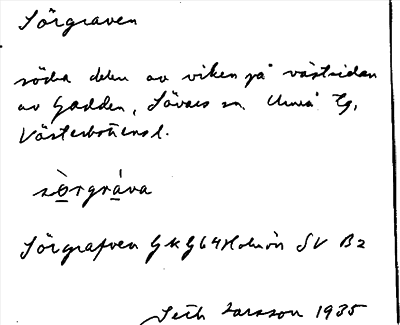 Sörgraven
södra delen av viken på västsidan
av Gadden, Sävars sn. Umeå tg,
Västerbottens l.
sò̲rgrá̲va
Sörgrafven GkG64 Holmön SV B2
Seth Larsson 1935